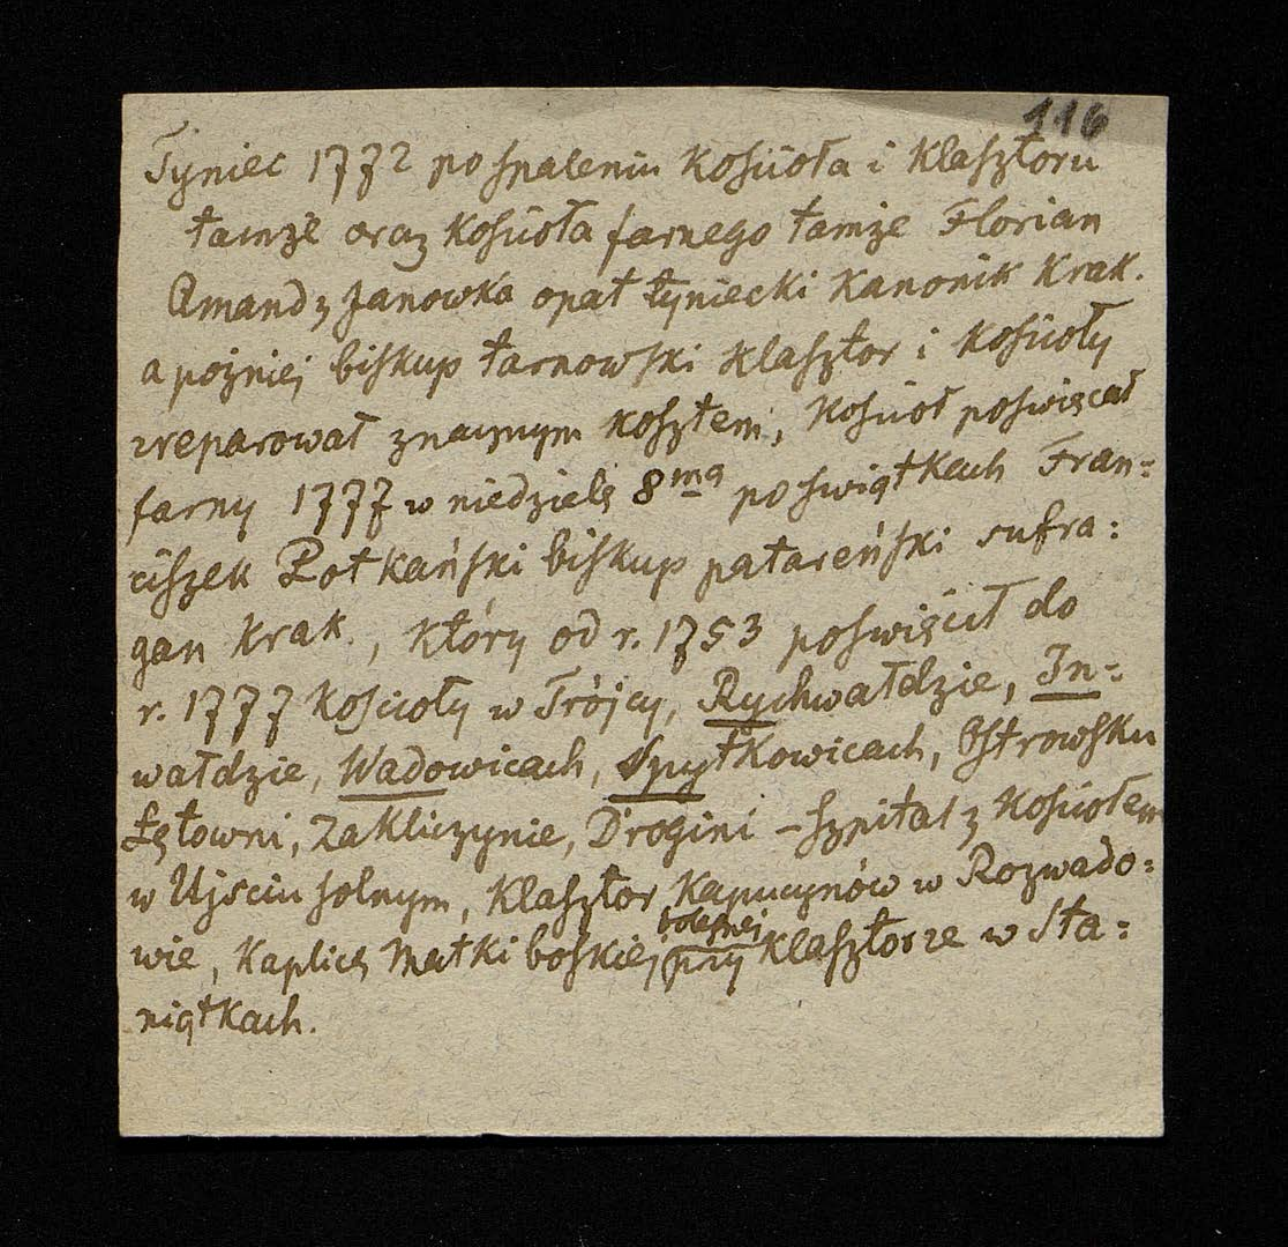 116
Tyniec 1772 po spaleniu kościoła i klasztoru
tamże oraz kościoła farnego tamże Florian
Amand z Janowka opat tyniecki kanonik krak.
a pożniej biskup tarnowski klasztor i kościoły
zreparował znacznym kosztem, kościoł poświęcał
farny 1777 w niedzielę 8ma po świątkach Fran=
ciszek Potkański biskup patareński sufra:
gan krak., który od r. 1753 poświęcił do
r. 1777 kościoły w Trójcy, Rychwałdzie, In=
wałdzie, Wadowicach, Spytkowicach, Ostrowsku
Łętowni, Zakliczynie, Drogini – szpital z kościołem
w Ujściu solnym, klasztor Kapucynów w Rozwado=
wie, kaplicę Matki boskiej bolesnej przy klasztorze w Sta=
niątkach.